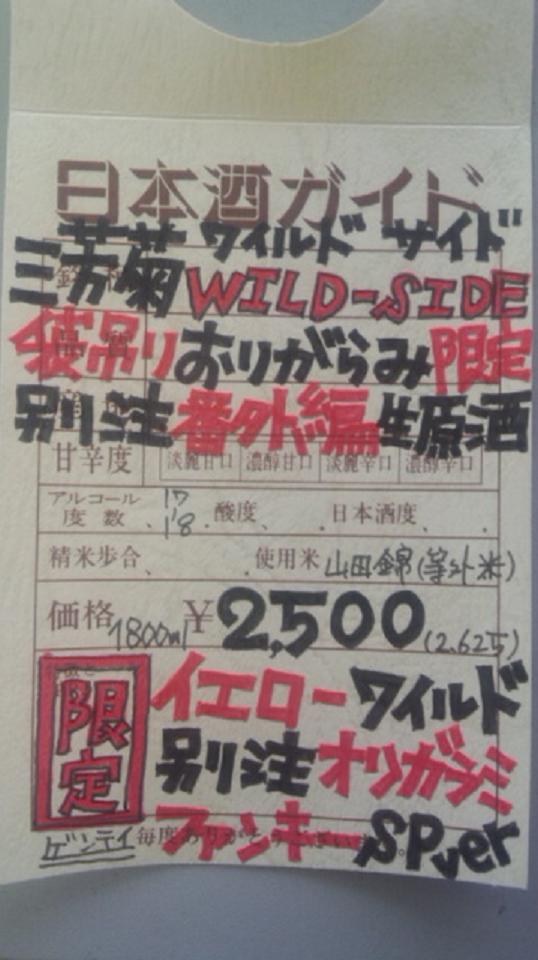 日本酒ガイド
ワイルド サイド
三芳菊 WILD-SIDE
袋吊りおりがらみ限定
別注番外編生原酒
甘辛度 淡麗甘口 濃醇甘口 淡麗辛口 濃醇辛口
アルコール度数 17 18 酸度 日本酒度
精米歩合 使用米 山田錦(等外米)
価格 1800ml ¥2,500 (2.625)
限定 イエローワイルド
別注オリガラミ
ファンキーSPver
ゲンテイ 毎度ありがとうございます。